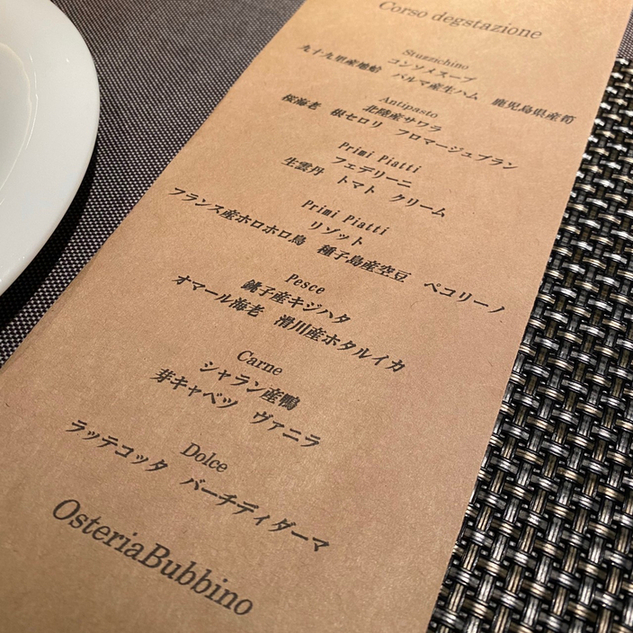 Corso degstazione
Stuzzichino
コンソメスープ
九十九里産地蛤　パルマ産生ハム　鹿児島県産筍
Antipasto
北陸産サワラ
桜海老　根セロリ　フロマージュブラン
Primi Piatti
フェデリーニ
生雲丹　トマト　クリーム
Primi Piatti
リゾット
フランス産ホロホロ鳥　種子島産空豆　ペコリーノ
Pesce
銚子産キジハタ
オマール海老　滑川産ホタルイカ
Carne
シャラン産鴨
芽キャベツ　ヴァニラ
Dolce
ラッテコッタ　バーチディダーマ
OsteriaBubbino